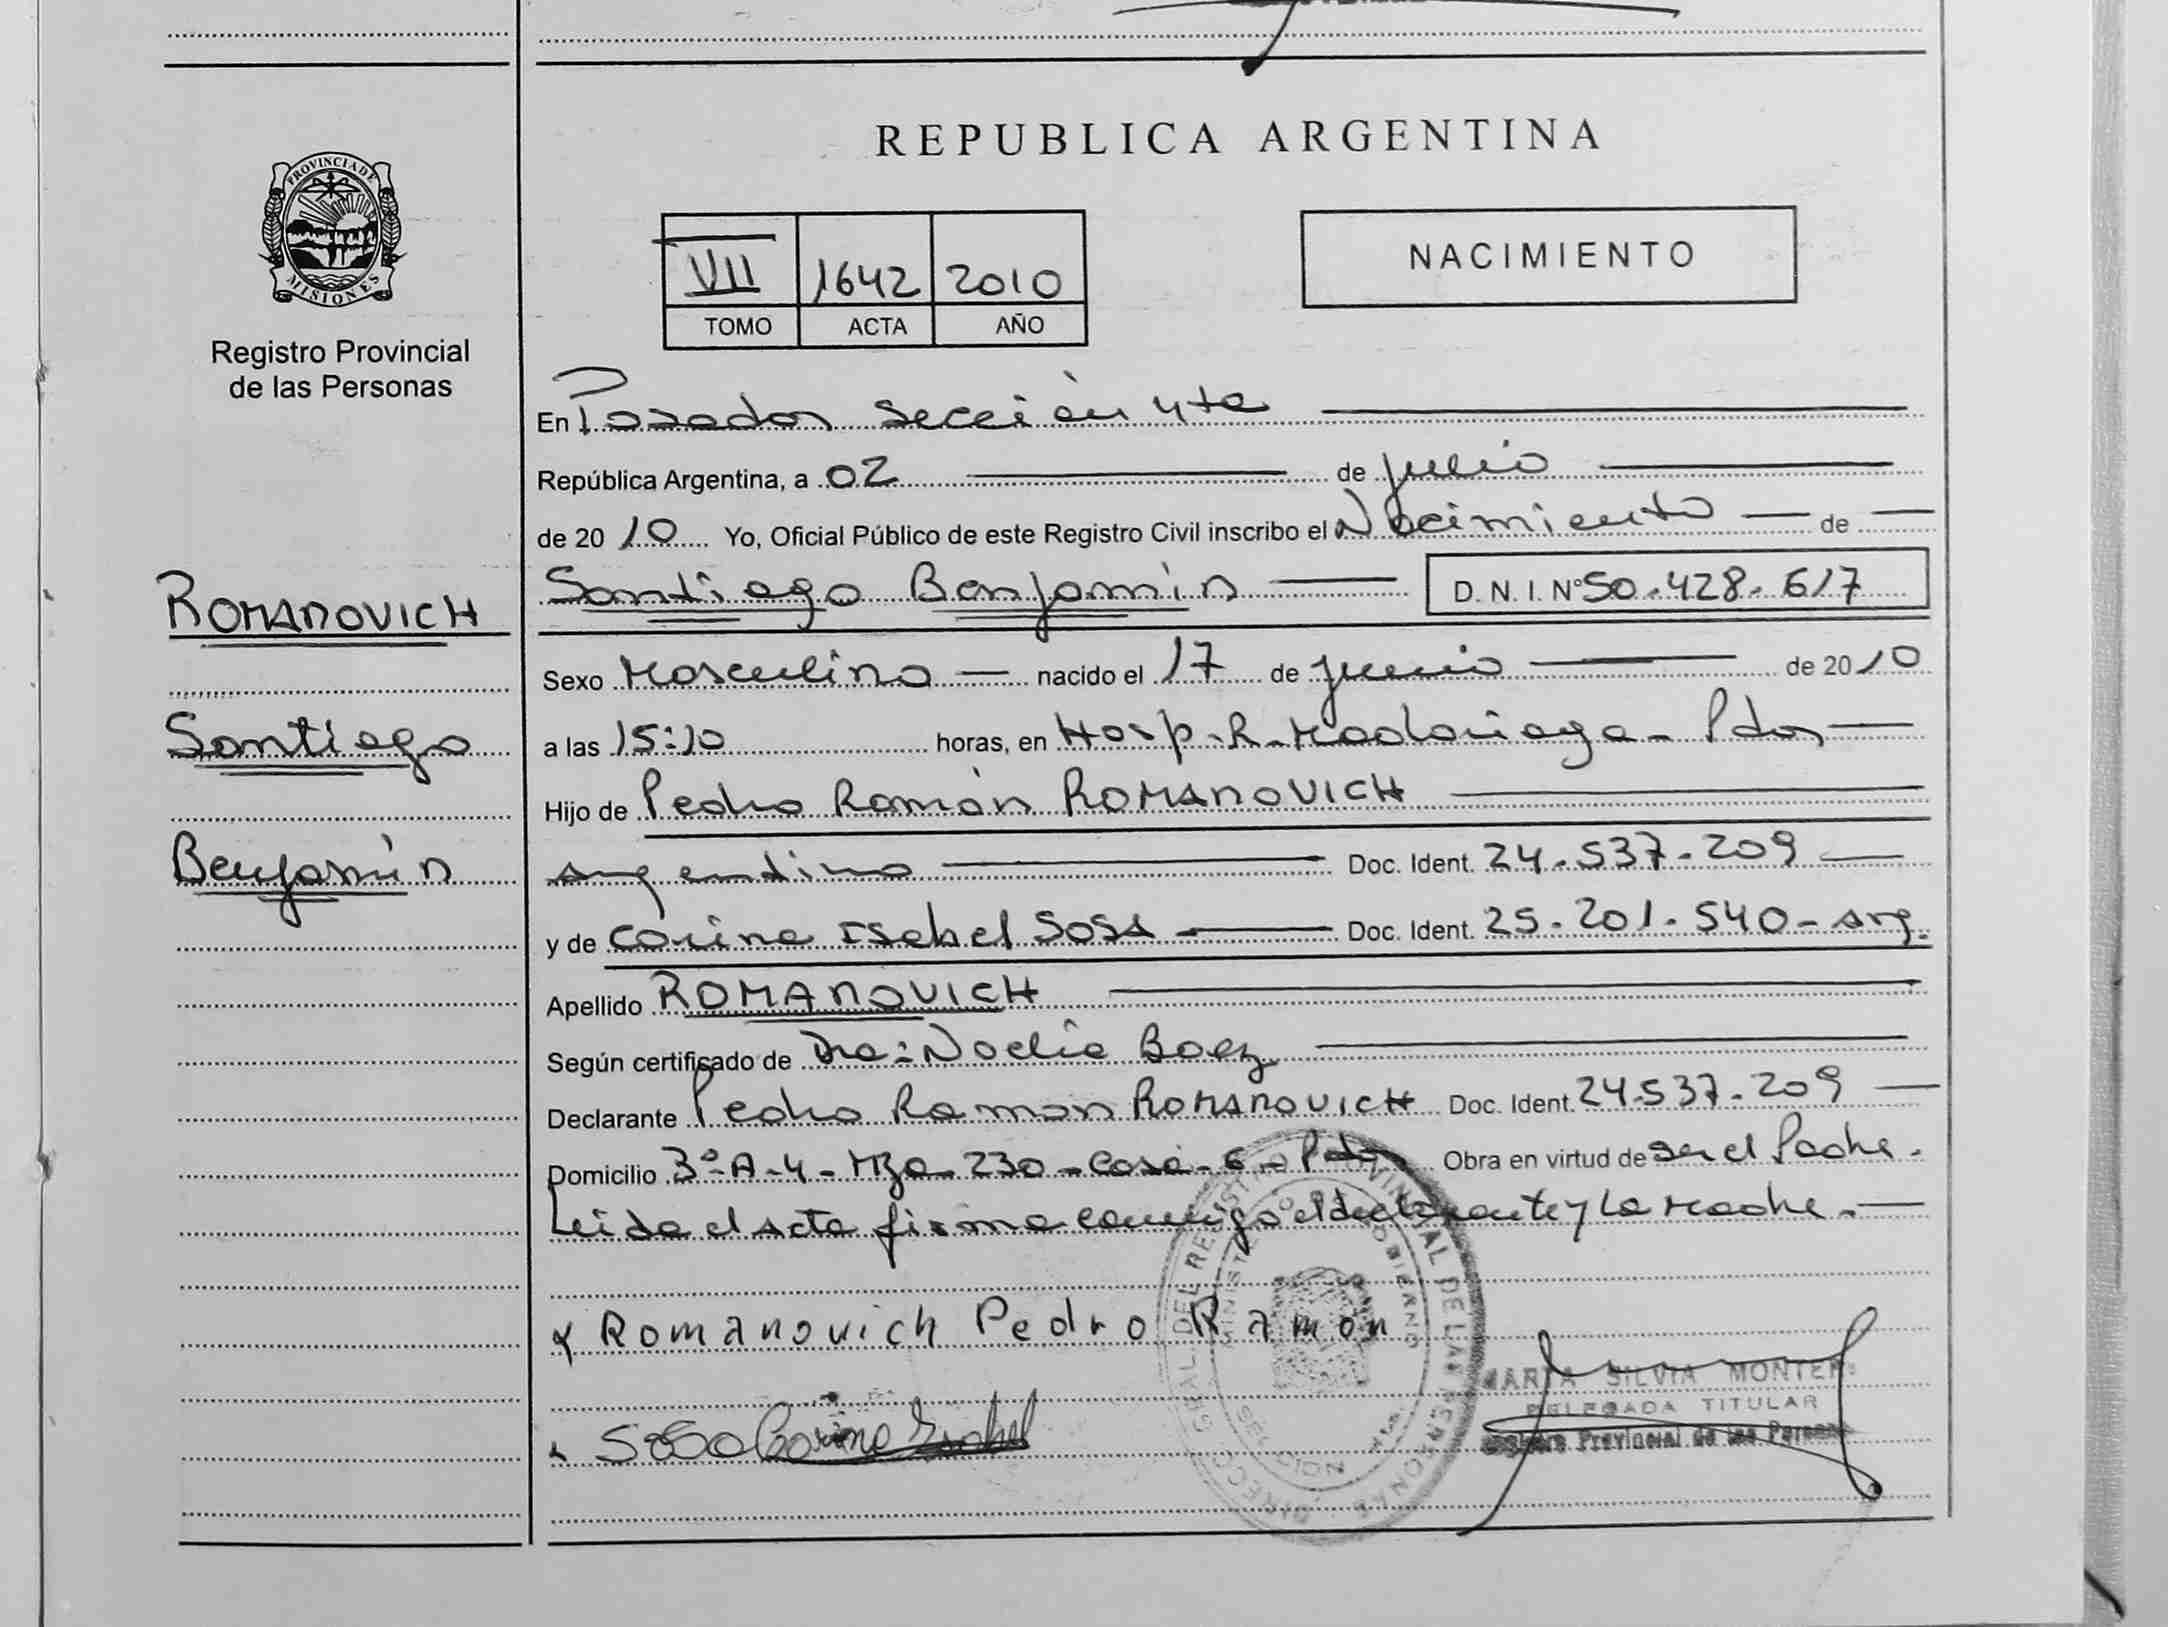 REPUBLICA ARGENTINA
PROVINCIA DE
MISIONES
Registro Provincial
de las Personas
VII 1642 2010
TOMO ACTA AÑO
NACIMIENTO
En Posadas Sección 4ta
República Argentina, a 02 de Julio
de 2010 Yo, Oficial Público de este Registro Civil inscribo el Nacimiento de
ROMANOVICH
Santiago Benjamín D. N. I. Nº 50.428.617
Sexo Masculino nacido el 17 de junio de 2010
Santiago
a las 15:10 horas, en Hosp. R. Madariaga - Pdas
Hijo de Pedro Ramón ROMANOVICH
Benjamín
argentino Doc. Ident. 24.537.209
y de Corina Isabel SOSA Doc. Ident. 25.201.540 - arg.
Apellido ROMANOVICH
Según certificado de Dra: Noelia Baez
Declarante Pedro Ramon ROMANOVICH Doc. Ident. 24.537.209
Domicilio 3º-A-4-Mza-230-Casa-6-Pdas Obra en virtud de ser el Padre.
Leida el acta firma conmigo el declarante y la madre.
x ROMANOVICH Pedro Ramón
SOSA Corina Isabel
SILVIA
DELEGADA TITULAR
Registro Provincial de las Personas